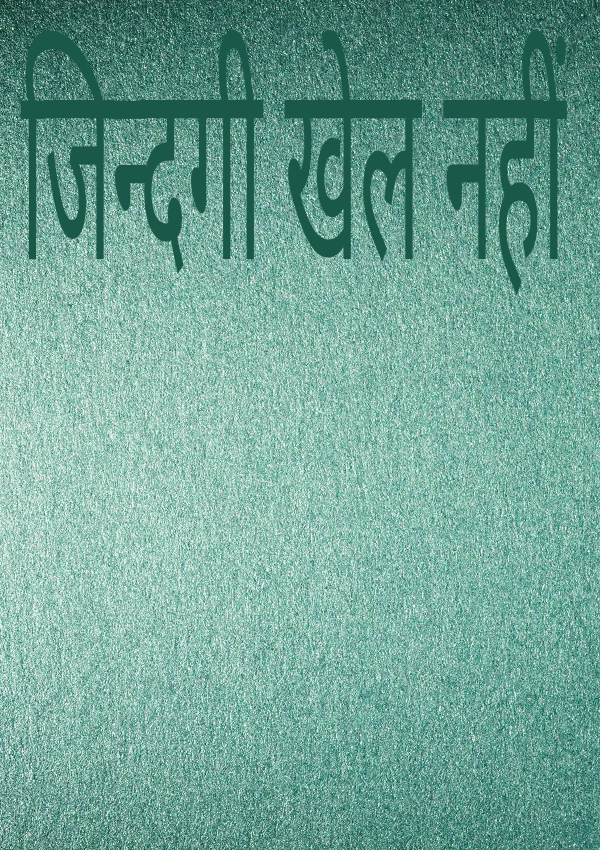 जिन्दगी खेल नहीं